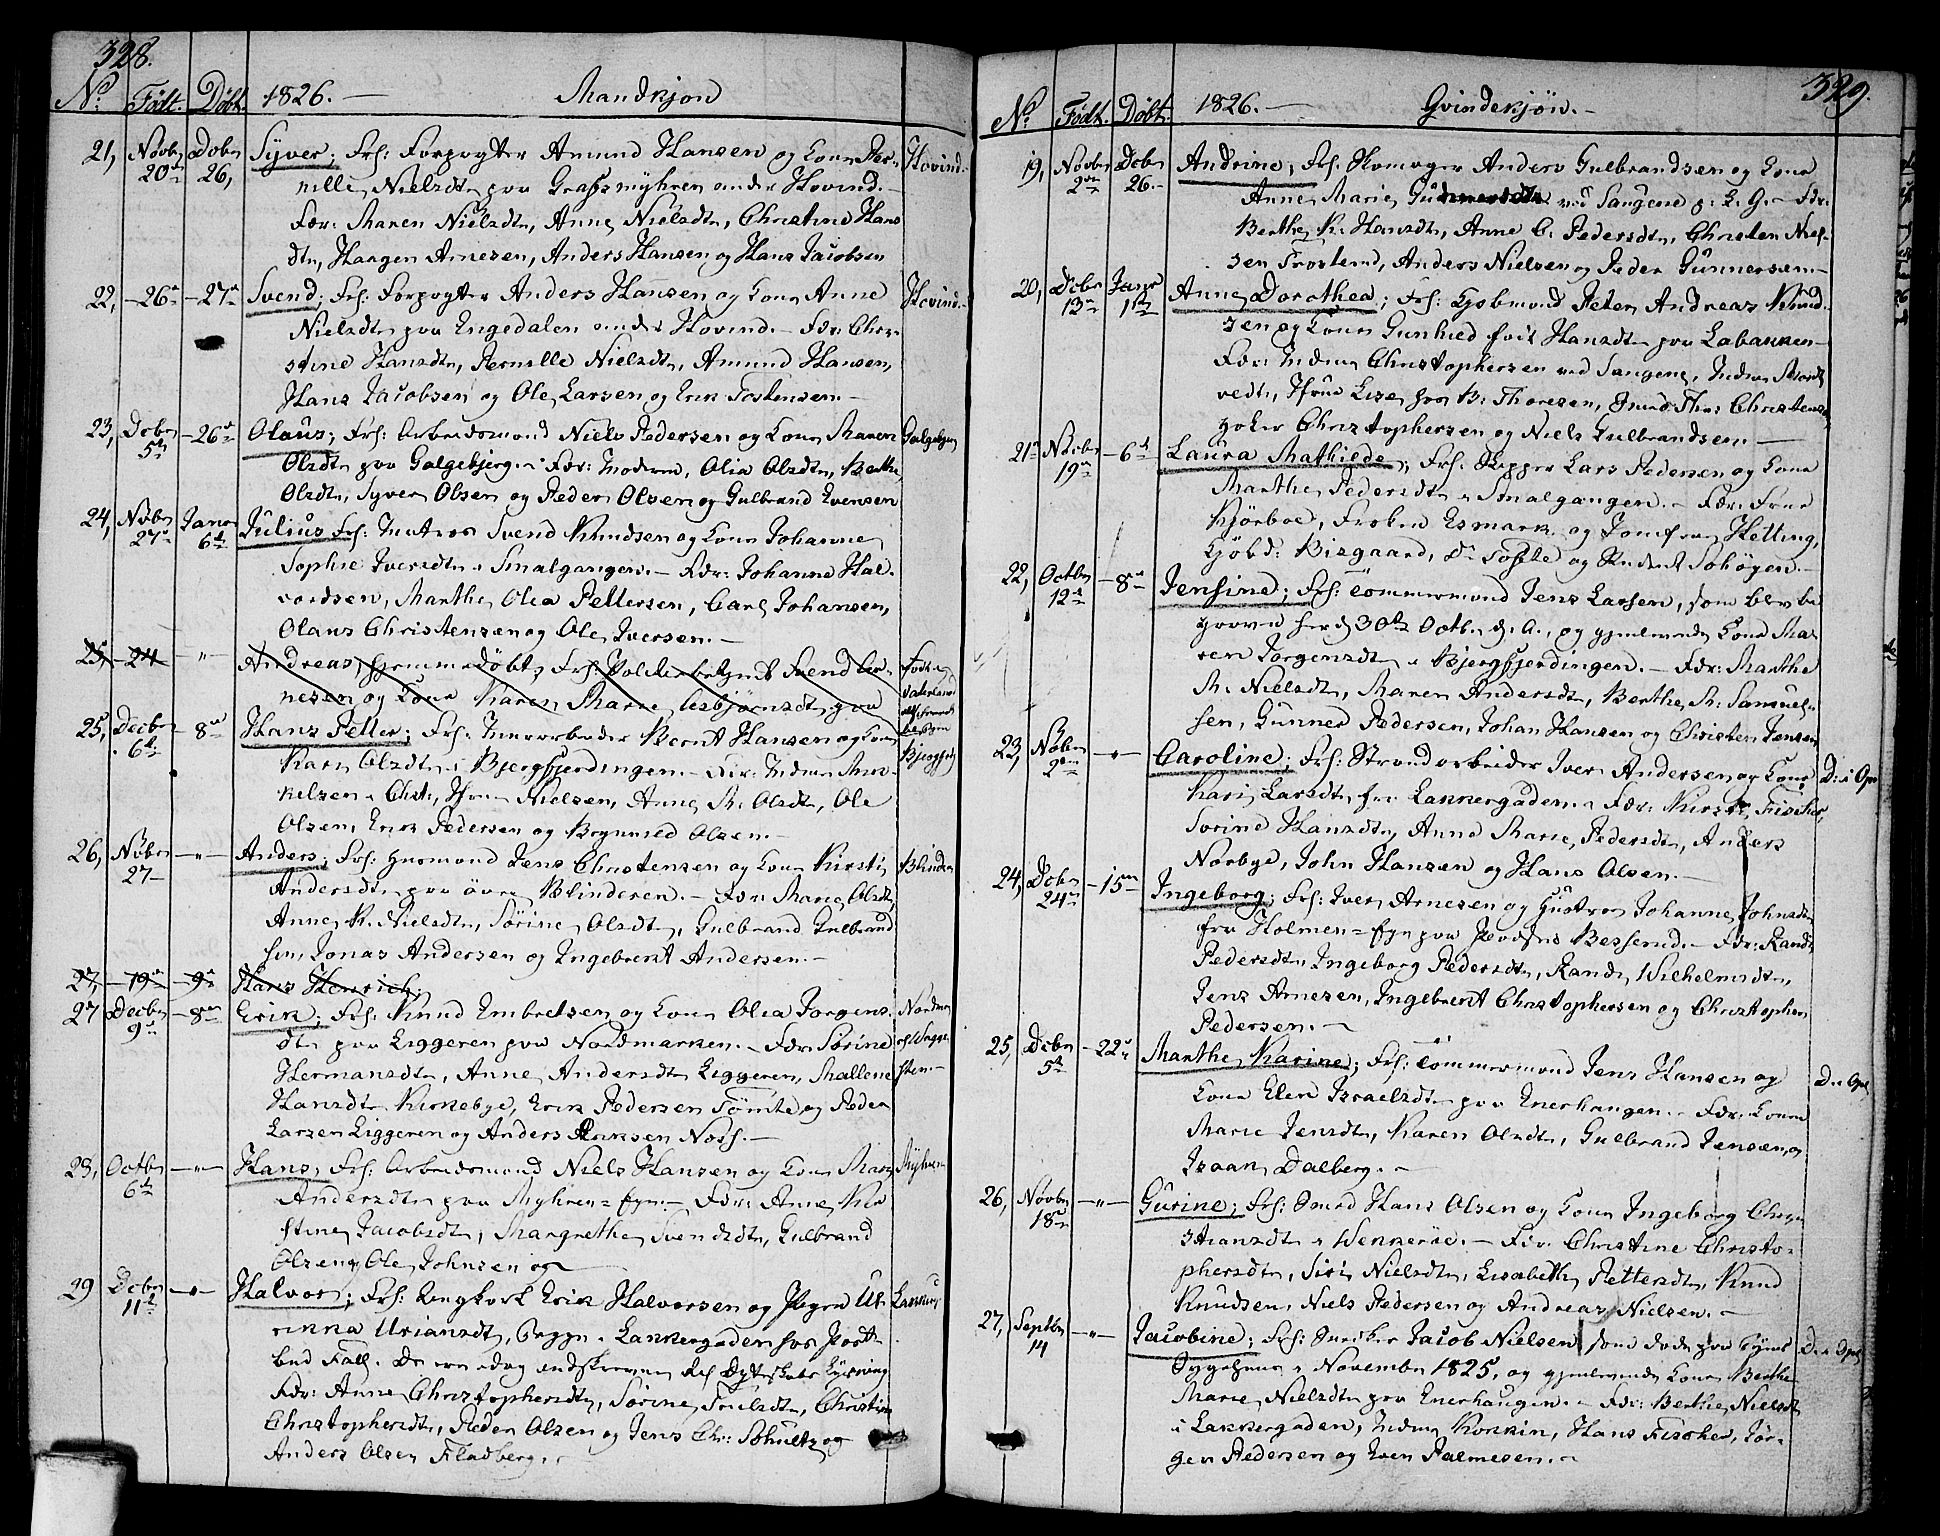 328.
No. Født. Døbt. 1826. — Mandkjøn
21, Novbr 20de Dcbr 26, Syver; Frs: Forpagter Amund Hansen og Kone Per- Hovind.
nille Nielsdtr paa Græssmyhren under Hovind.
Fdr: Maren Nielsdtr, Anne Nielsdtr, Christine Hans
dtr, Haagen Arnesen, Anders Hansen og Hans Jacobsen
22, — 26de — 27de Svend; Frs: Forpagter Anders Hansen og Kone Anne Hovind.
Nielsdtr paa Engedalen under Hovind. — Fdr: Chri-
stine Hansdtr, Pernille Nielsdtr, Amund Hansen,
Hans Jacobsen og Ole Larsen og Erik Tostensen. —
23, Dcbr 5te — 26de Olaus; Frs: Arbeidsmand Niels Pedersen og Kone Maren Galgebjerg
Olsdtr paa Galgebjerg. — Fdr: Moderen, Olia Olsdtr, Berthe
Olsdtr, Syver Olsen og Peder Olsen og Gulbrand Evensen
24, Novbr 27de Janr 6te Julius Frs: Matros Svend Knudsen og Kone Johanne
Sophie Iversdtr i Smalgangen. — Fdr: Johanne Hal-
vordsen, Marthe Olea Pettersen, Carl Johansen,
Olaus Christensen og Ole Iversen. —
25, — 24 " Andreas, hjemmedøbt; Frs: Svend Ar-
nesen og Kone Karen Marie Asbjørnsdtr paa
25, Decbr 6te — 8de Hans Petter; Frs: Bernt Hansen og Kone
Kari Olsdtr i Bjergfjerdingen. — Fdr: Mik-
kelsen i Nielsen, Anne M. Olsdtr, Ole
Olsen, Erik Pedersen og Brynild Olsen. —
26, Novbr 27 — " — Anders; Frs: Husmand Jens Christensen og Kone Kirsti Blindern
Andersdtr paa øvre Blinderen. — Fdr: Marie Olsdtr,
Anne K. Nielsdtr, Sørine Olsdtr, Gulbrand Gulbrand
sen, Jonas Andersen og Ingebrent Andersen. —
27, — 19de — 9de Hans Henrich;
27 Decbr 9de — 8de Erik; Frs: Knud Embretsen og Kone Olia Jorgens-
dtr paa Liggeren paa Nordmarken. — Fdr: Sørine
Hermansdtr, Anne Andersdtr Liggeren, Mallene
Hansdtr Kirkebye, Erik Pedersen Tømte og Peder
Larsen Liggeren og Anders Eriksen Noss. —
28, Octbr 6te — " — Hans; Frs: Arbeidsmand Niels Hansen og Kone Mari Myhren
Andersdtr paa Myhren = Eyn. — Fdr: Anne Kir
stine Jacobsdtr, Margrethe Svendsdtr, Gulbrand
Olsen og Ole Johnsen og —
29 Dcbr 11te — " — Halvor; Frs: Ungkarl Erik Halvorsen og Pigen Ul-
rikka Uriansdtr, Begge i Lakkergaden hos Post-
bud Fall.
Fdr: Anne Christophersdtr, Sørine Poulsdtr, Christine
Christophersdtr, Peder Olsen og Jens Chr: Schultz og
Anders Olsen Fladberg. —
329.
No. Født. Døbt. 1826. — Qvindekjøn. —
19, Novbr 2den Dcbr 26. Andrine; Frs: Skomager Anders Gulbrandsen og Kone
Anne Marie Gudmundsdtr ved Sangene p. E. G. — Fdr:
Berthe K. Hansdtr, Anne C. Pedersdtr, Christen Niel-
sen Frosterud, Anders Nielsen og Peder Gunnersen. —
20, Dcbr 13de Janr 1ste Anne Dorothea; Frs: Kjøbmand Peter Andreas Knud-
sen og Kone Gunhild født Hansdtr paa Labakken —
Fdr: Madam Christophersen ved Sangene, Madam
B: Thoresen, Ths: Christensen,
Christophersen og Niels Gulbrandsen. —
21de Novbr 19de — 6te Laura Mathilde; Frs: Skipper Lars Pedersen og Kone
Marthe Pedersdtr i Smalgangen. — Fdr: Frue
Kjørboe, Frøken Esmark og Jomfru Hetting,
Kjøbd: Bisgaard, do Tofte og Student Schøyen. —
22, Octbr 12te — 8de Jensine; Frs: Tømmermand Jens Larsen, som blev be
gravet her d 30te Octbr d. A., og gjenlevende Kone Ma-
ren Jorgensdtr i Bjergfjerdingen. — Fdr: Marthe
M. Nielsdtr, Maren Andersdtr, Berthe M. Samuel-
sen, Gunner Pedersen, Johan Hansen og Christen Jensen
23, Novbr 2den — " — Caroline; Frs: Strandarbeider Iver Andersen og Kone
Kari Larsdtr fra Lakkergaden. — Fdr: Kirsti Fischer,
Sorine Hansdtr, Anne Marie Pedersdtr, Anders
Norbye, John Hansen og Hans Olsen. —
24, Dcbr 24de — 15de Ingeborg; Frs: Iver Arnesen og Hustroe Johanne Johnsdtr
fra Holmen = Eyn paa Besserud. — Fdr: Randi
Pedersdtr, Ingeborg Pedersdtr, Randi Wilhelmsdtr,
Jens Arnesen, Ingebrent Christophersen og Christopher
Pedersen. —
25, Dcbr 5te — 22de Marthe Karine; Frs: Tømmermand Jens Hansen og
Kone Elen Israelsdtr paa Enerhaugen. — Fdr: Kone
Marie Jensdtr, Karen Olsdtr, Gulbrand Jensen, og
Isaak Dalberg. —
26, Novbr 18de — " — Gurine; Frs: Hans Olsen og Kone Ingeborg Chri-
stiansdtr i Wekkerøe. — Fdr: Christine Christo-
phersdtr, Siri Nielsdtr, Lisabeth Pettersdtr, Knud
Knudsen, Niels Pedersen og Andreas Nielsen. —
27, Septbr 14 — " — Jacobine; Frs: Snedker Jacob Nielsen, som døde paa Byens
Sygehuus i November 1825, og gjenlevende Kone Berthe
Marie Nielsdtr paa Enerhaugen. — Fdr: Berthe Nielsdtr
i Lakkergaden, Madam Korkin, Hans Fischer, Jør-
gen Pedersen og Even Palmesen. —